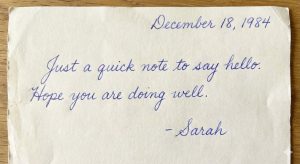 December 18, 1984
Just a quick note to say hello.
Hope you are doing well.
- Sarah